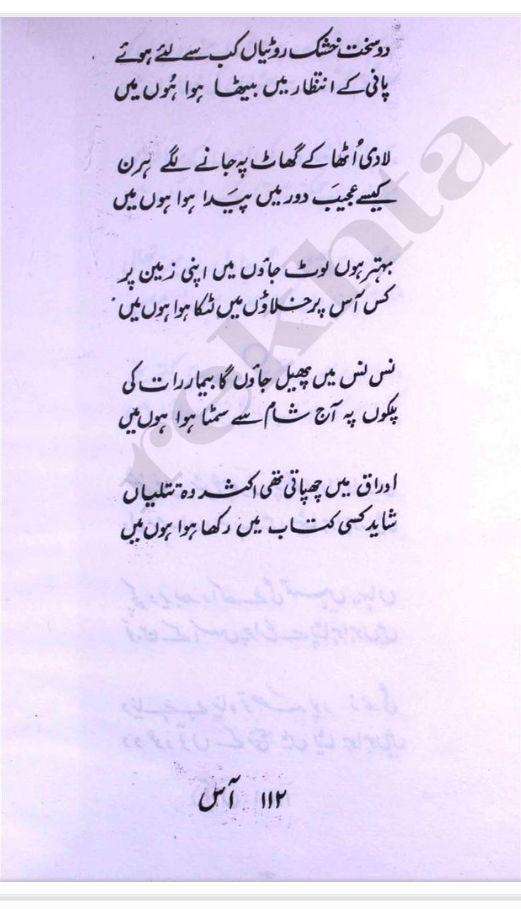 دو سخت خشک روٹیاں کب سے لئے ہوئے
پانی کے انتظار میں بیٹھا ہوا ہُوں میں
لادی اُٹھا کے گھاٹ پہ جانے لگے ہرن
کیسے عجیب دور میں پَیدا ہوا ہوں میں
بہتر ہوں لوٹ جاؤں میں اپنی زمین پر
کس آس پر خلاؤں میں ٹکا ہوا ہوں میں
نس نس میں پھیل جاؤں گا بیمار رات کی
پلکوں پہ آج شام سے سمٹا ہوا ہوں میں
اوراق میں چھپاتی تھی اکثر وہ تتلیاں
شاید کسی کتاب میں رکھا ہوا ہوں میں
۱۱۲ آس
rekhta